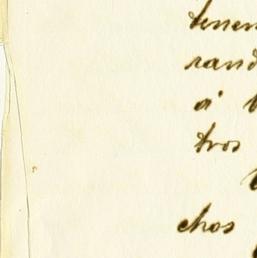 tenem
rand
á
tros
chos